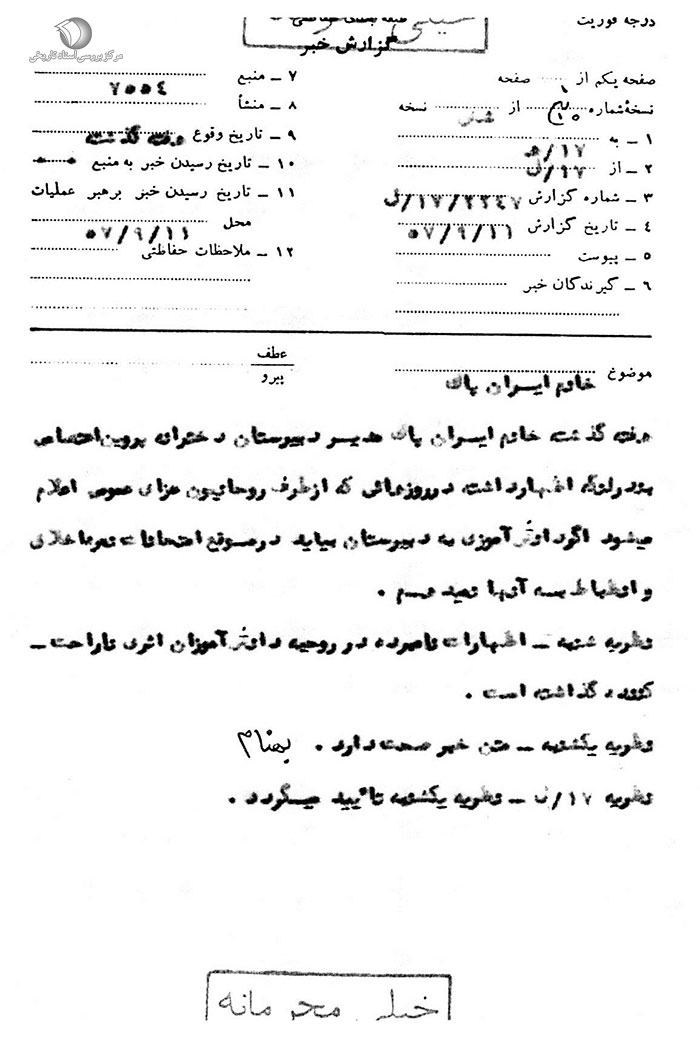 مرکز بررسی اسناد تاریخی
درجه فوریت
خیلی
طبقه بندی حفاظتی
گزارش خبر
صفحه یکم از ۱ صفحه
نسخهٔ شماره از شش نسخه
۱ ـ به ۱۷/ه
۲ ـ از ۱۷/ل
۳ ـ شماره گزارش ۲۲۴۷/۱۷/ل
۴ ـ تاریخ گزارش ۵۷/۹/۱۱
۵ ـ پیوست
۶ ـ گیرندگان خبر
۷ ـ منبع ۷۵۵۴
۸ ـ منشأ
۹ ـ تاریخ وقوع هفته گذشته
۱۰ ـ تاریخ رسیدن خبر به منبع
۱۱ ـ تاریخ رسیدن خبر برهبر عملیات
محل ۵۷/۹/۱۱
۱۲ ـ ملاحظات حفاظتی
موضوع خانم ایران پاک
عطف
پیرو
هفته گذشته خانم ایران پاک مدیر دبیرستان دخترانه پروین اعتصامی
بندرلنگه اظهارداشت درروزهائی که ازطرف روحانیون عزای عمومی اعلام
میشود اگردانش آموزی به دبیرستان نیاید درموقع امتحانات نمره اخلاق
و انظباط به آنها نمیدهم .
نظریه شنبه ـ اظهارات نامبرده در روحیه دانش آموزان اثری ناراحت ـ
کننده گذاشته است .
نظریه یکشنبه ـ متن خبر صحت دارد . بهنام
نظریه ۱۷/ل ـ نظریه یکشنبه تائید میگردد .
خیلی محرمانه